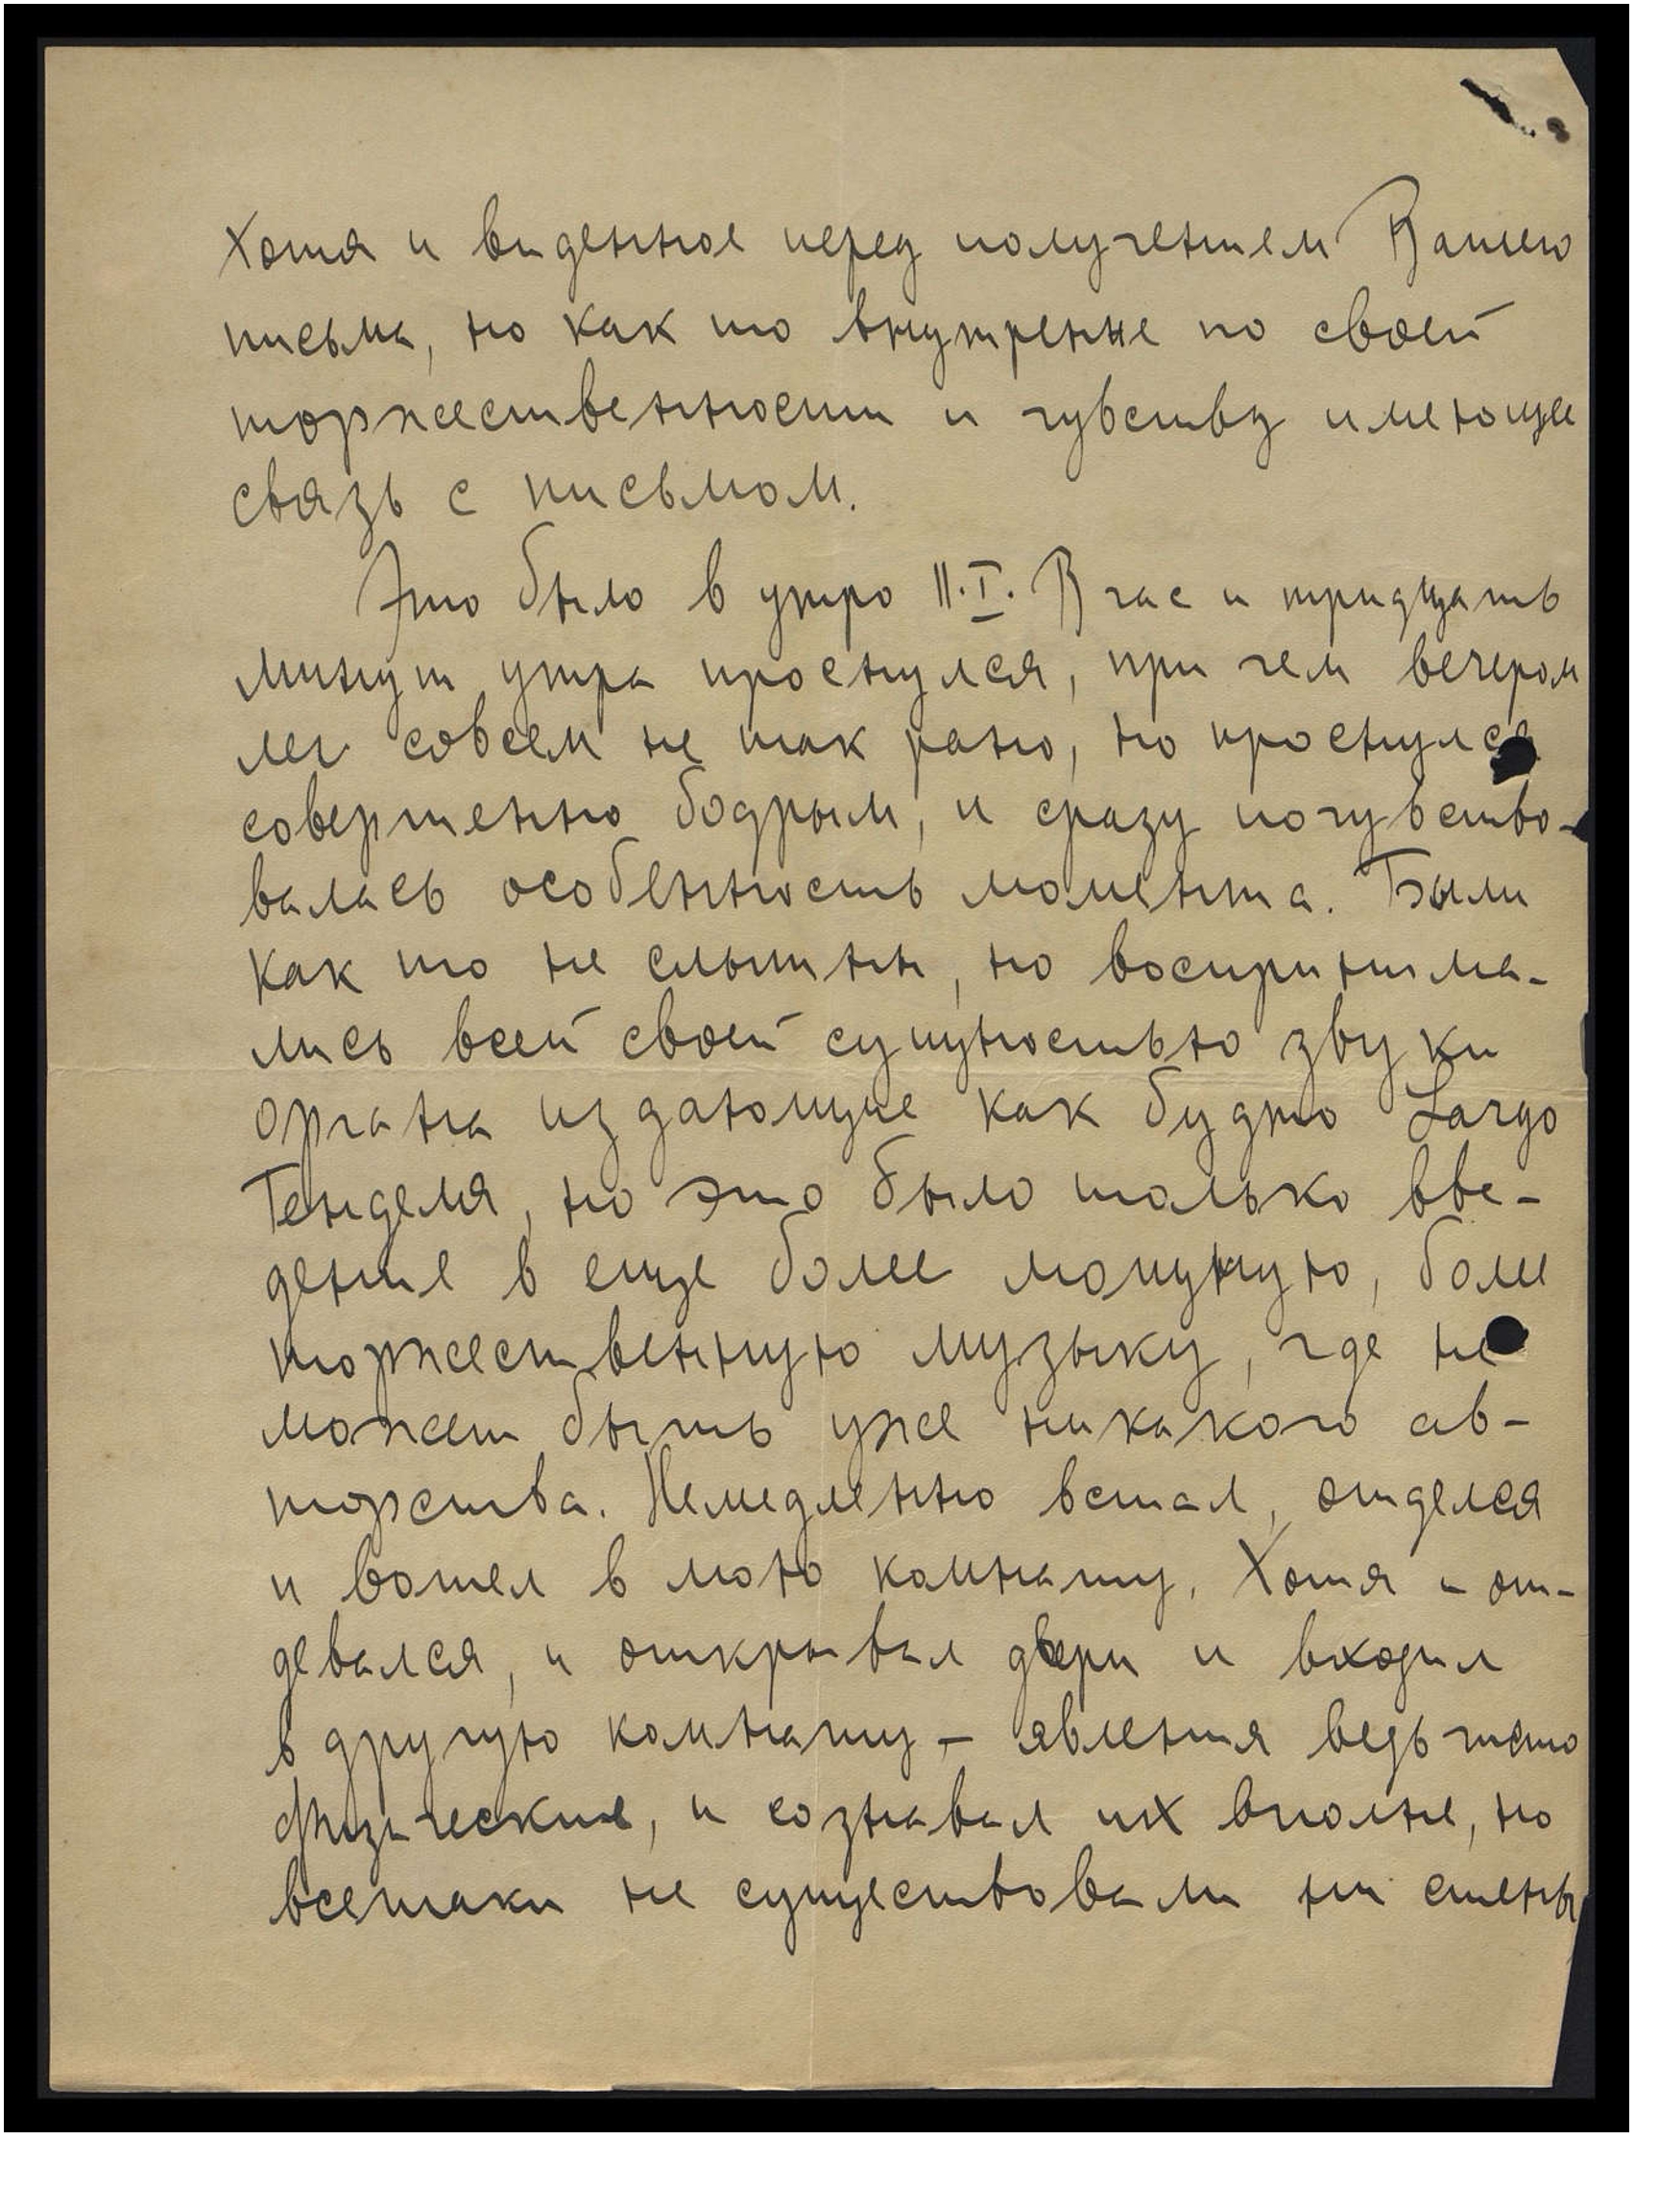 Хотя и виденное перед получением Вашего
письма, но как то внутренне по своей
торжественности и чувству имеющее
связь с письмом.
Это было в утро 11.I. В час и тридцать
минут утра проснулся, при чем вечером
лег совсем не так рано, но проснулся
совершенно бодрым, и сразу почувство-
валась особенность момента. Были
как то не слышны, но воспринима-
лись всей своей сущностью звуки
органа издающие как будто Largo
Генделя, но это было только вве-
дение в еще более мощную, более
торжественную музыку, где не
может быть уже никакого ав-
торства. Немедленно встал, отделся
и вошел в мою комнату. Хотя и от-
девался, и открывал двери и входил
в другую комнату — явления ведь чисто
физические, и сознавал их вполне, но
всетаки не существовали ни стены